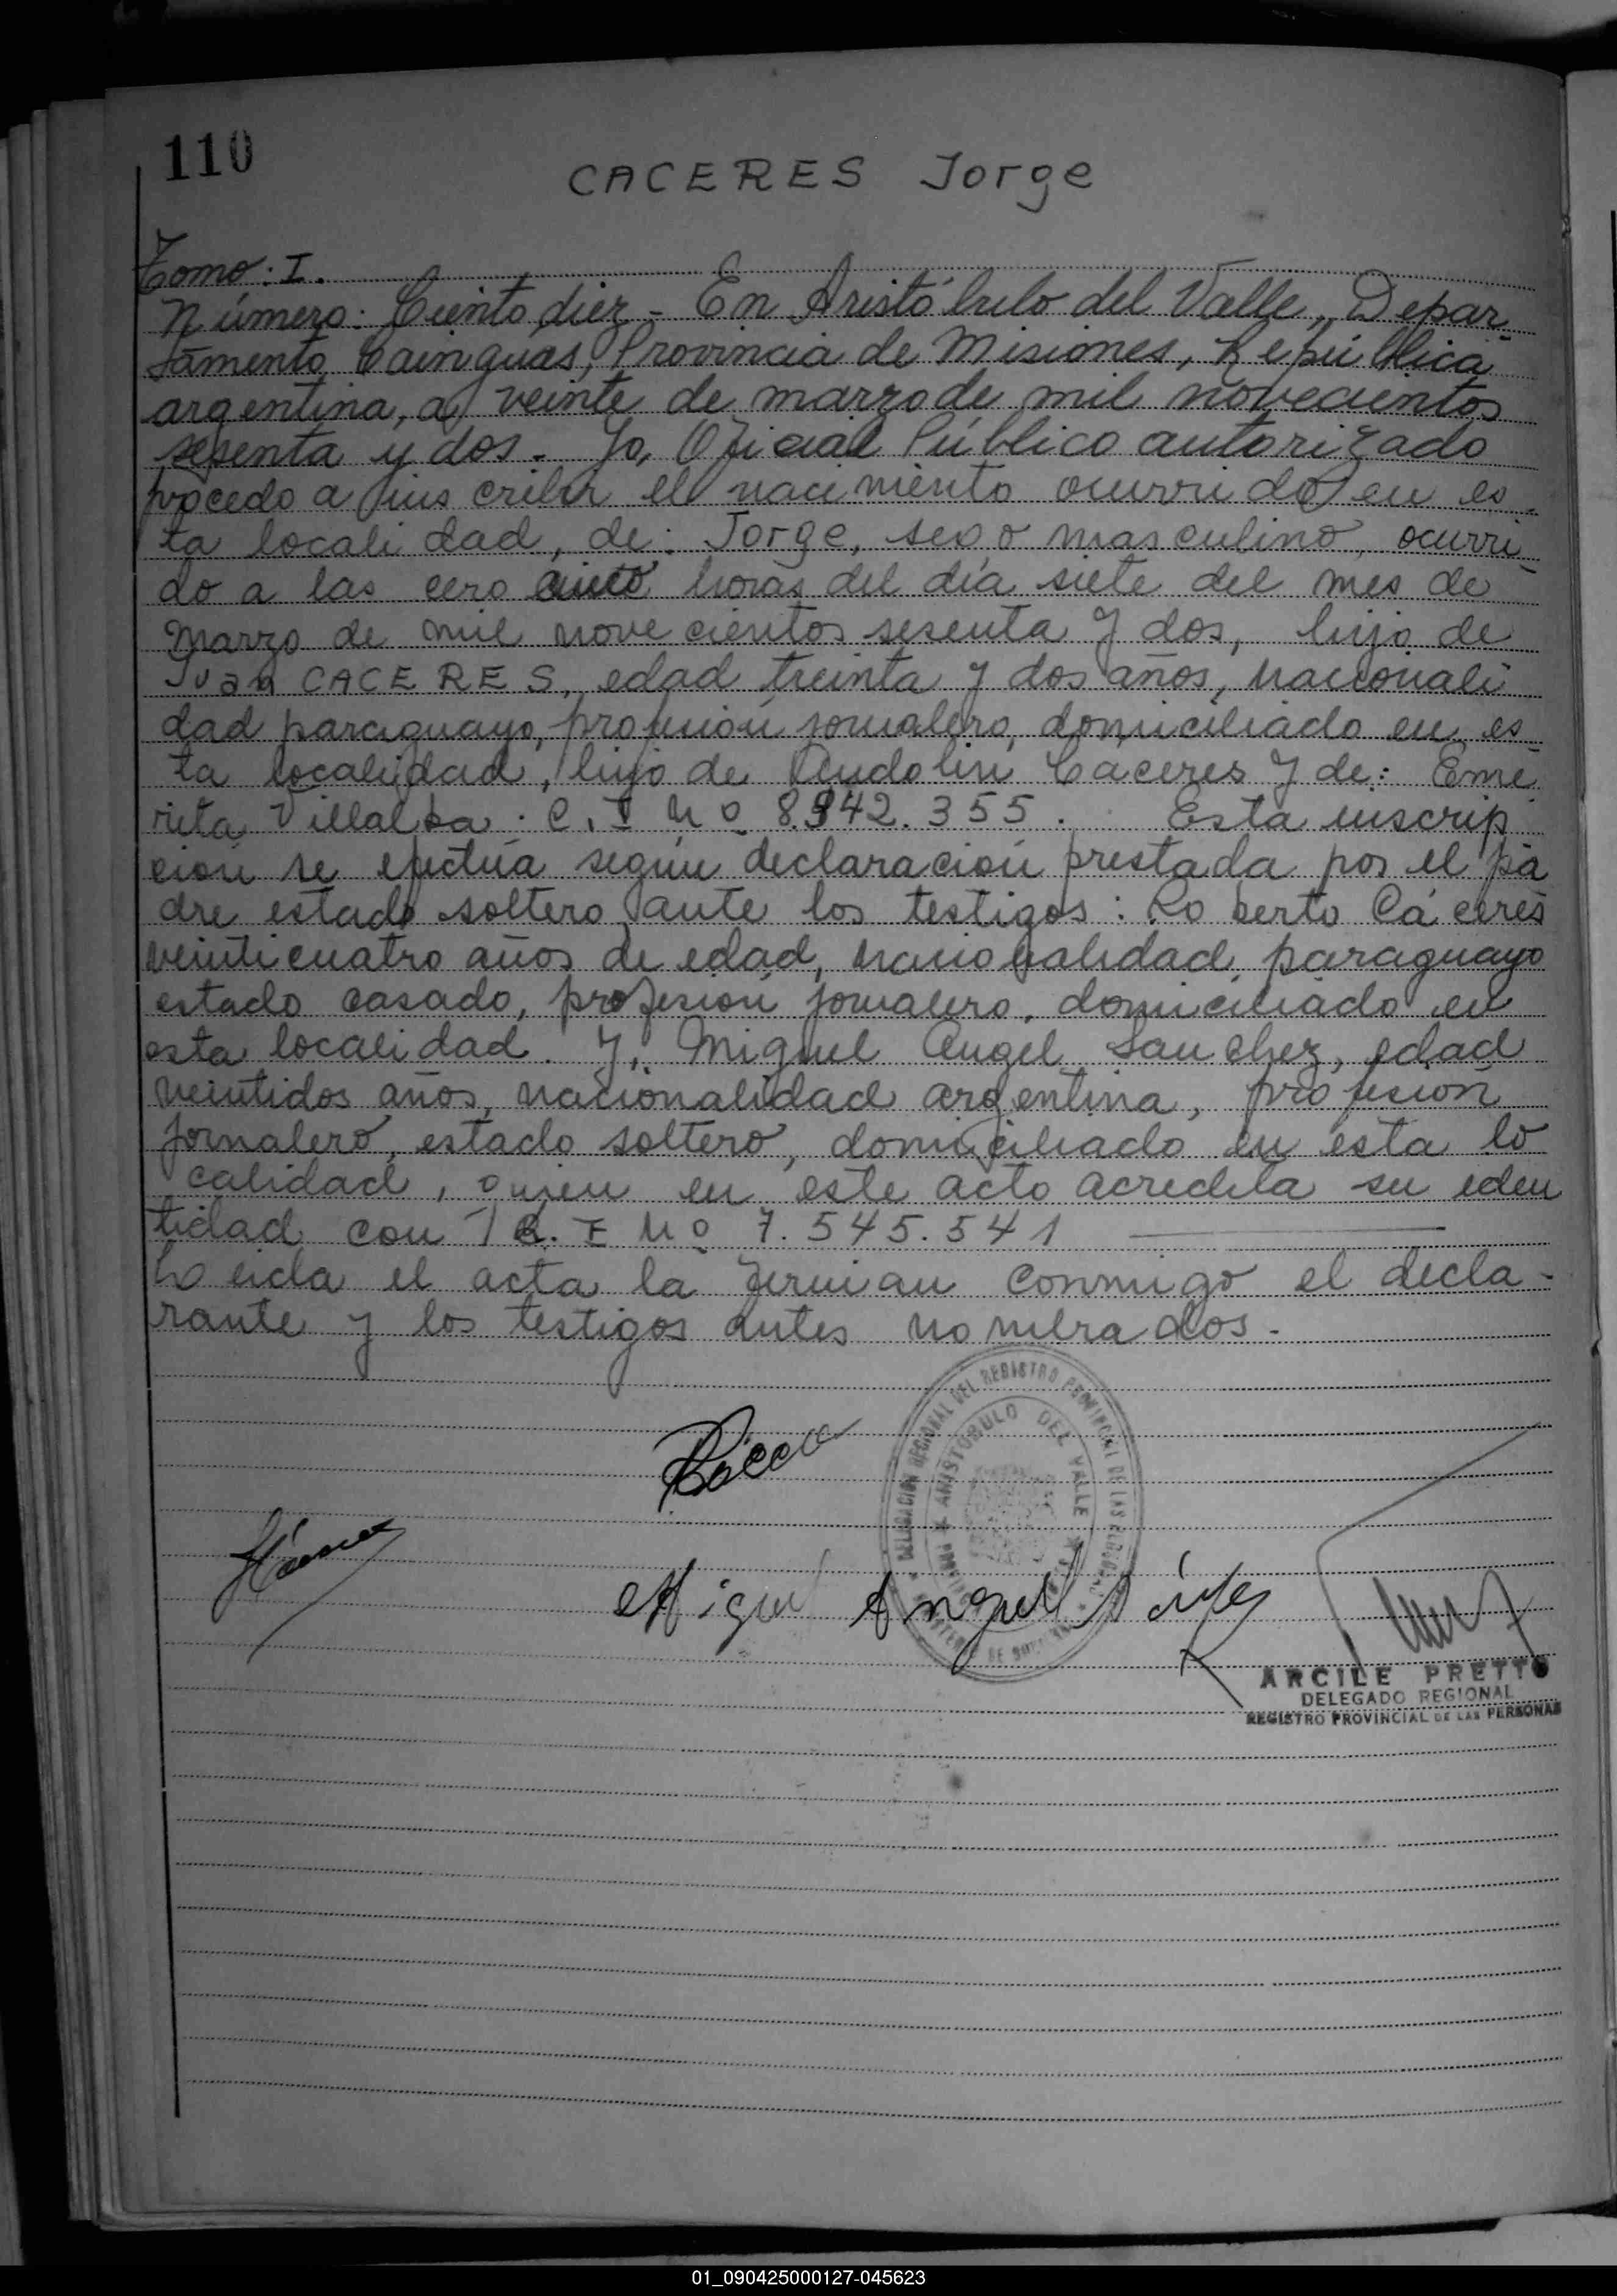 110
CACERES Jorge
Tomo: I.
Número: Ciento diez - En Aristóbulo del Valle, Depar
tamento Cainguás, Provincia de Misiones, República
argentina, a veinte de marzo de mil novecientos
sesenta y dos. Yo, Oficial Público autorizado
procedo a inscribir el nacimiento ocurrido en es
ta localidad, de: Jorge, sexo masculino, ocurri
do a las cero cinco horas del día siete del mes de
marzo de mil novecientos sesenta y dos, hijo de
Juan CACERES, edad treinta y dos años, nacionali
dad paraguayo, profesión jornalero, domiciliado en es
ta localidad, hijo de Caceres y de: Eme
rita Villalba. C. I Nº 8.942.355. Esta inscrip
ción se efectúa según declaración prestada por el pa
dre estado soltero ante los testigos: Roberto Cáceres
veinticuatro años de edad, nacionalidad paraguayo
estado casado, profesión jornalero, domiciliado en
esta localidad. Y, Miguel Angel Sanchez, edad
veintidos años, nacionalidad argentina, profesion
jornalero, estado soltero, domiciliado en esta lo
calidad, quien en este acto acredita su iden
tidad con I Nº 7.545.541
Leida el acta la firman conmigo el decla-
rante y los testigos antes nombrados.
DELEGACION REGIONAL DEL REGISTRO PROVINCIAL DE LAS PERSONAS
ARISTOBULO DEL VALLE
Miguel Angel
ARCILE PRETTO
DELEGADO REGIONAL
REGISTRO PROVINCIAL DE LAS PERSONAS
01_090425000127-045623